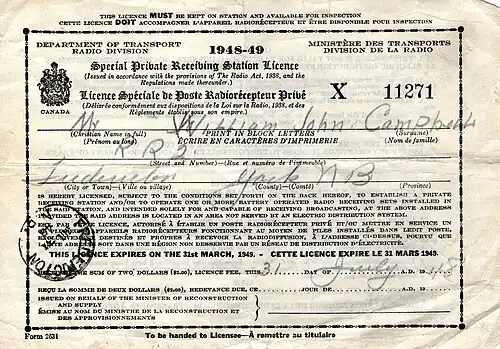 THIS LICENCE MUST BE KEPT ON STATION AND AVAILABLE FOR INSPECTION
CETTE LICENCE DOIT ACCOMPAGNER L'APPAREIL RADIORÉCEPTEUR ET ÊTRE DISPONIBLE POUR INSPECTION
DEPARTMENT OF TRANSPORT
RADIO DIVISION
1948-49
MINISTÈRE DES TRANSPORTS
DIVISION DE LA RADIO
CANADA
Special Private Receiving Station Licence
(Issued in accordance with the provisions of The Radio Act, 1938, and the
Regulations made thereunder.)
Licence Spéciale de Poste Radiorécepteur Privé
(Délivrée conformément aux dispositions de la Loi sur la Radio, 1938, et des
Règlements établis sous son empire.)
X 11271
Mr William John Campbell
(Christian Name in full)
(Prénom au long)
PRINT IN BLOCK LETTERS
ÉCRIRE EN CARACTÈRES D'IMPRIMERIE
(Surname)
(Nom de famille)
R R 3
(Street and Number)—(Rue et numéro de l'immeuble)
Fredericton York N B
(City or Town)—(Ville ou village)
(County)—(Comté)
(Province)
IS HEREBY LICENSED, SUBJECT TO THE CONDITIONS SET FORTH ON THE BACK HEREOF, TO ESTABLISH A PRIVATE
RECEIVING STATION AND/OR TO OPERATE ONE OR MORE BATTERY OPERATED RADIO RECEIVING SETS INSTALLED IN
THE SAID STATION, AND INTENDED SOLELY FOR AND CAPABLE OF RECEIVING BROADCASTING, AT THE ABOVE ADDRESS
PROVIDED THE SAID ADDRESS IS LOCATED IN AN AREA NOT SERVED BY AN ELECTRIC DISTRIBUTION SYSTEM.
EST PAR LES PRÉSENTES AUTORISÉ À ÉTABLIR UN POSTE RADIORÉCEPTEUR PRIVÉ ET/OU METTRE EN SERVICE UN
OU PLUSIEURS APPAREILS RADIORÉCEPTEURS FONCTIONNANT AU MOYEN DE PILES INSTALLÉS DANS LEDIT POSTE,
UNIQUEMENT DESTINÉS ET PROPRES À RECEVOIR LA RADIODIFFUSION, À L'ADRESSE CI-DESSUS, POURVU QUE
SOIT DANS UNE RÉGION NON DESSERVIE PAR UN RÉSEAU DE DISTRIBUTION D'ÉLECTRICITÉ.
THIS LICENCE EXPIRES ON THE 31st MARCH, 1949. - CETTE LICENCE EXPIRE LE 31 MARS 1949.
THE SUM OF TWO DOLLARS ($2.00), LICENCE FEE, THIS 31 DAY OF July A.D. 19
REÇU LA SOMME DE DEUX DOLLARS ($2.00), REDEVANCE DUE, CE JOUR DE A.D. 19
ISSUED ON BEHALF OF THE MINISTER OF RECONSTRUCTION
AND SUPPLY
ÉMISE AU NOM DU MINISTRE DE LA RECONSTRUCTION ET
DES APPROVISIONNEMENTS
Form 2631
To be handed to Licensee—À remettre au titulaire